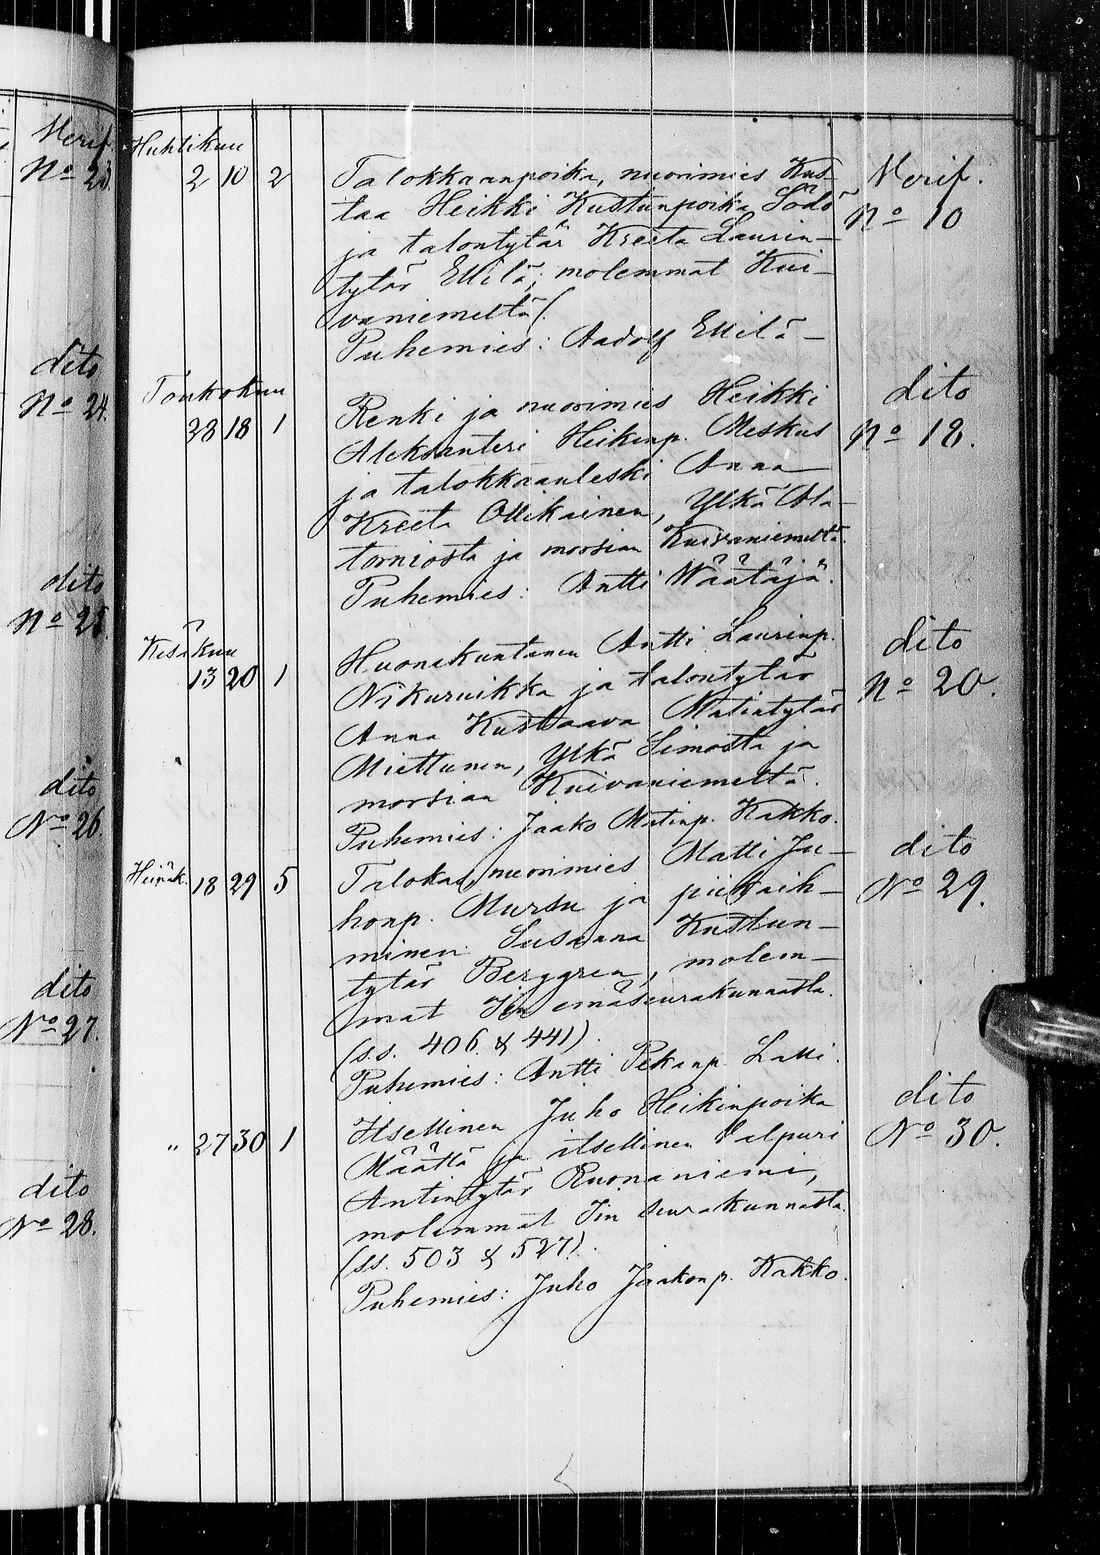 Verif.
No 23.
dito
No 24.
dito
No 25.
dito
No 26.
dito
No 27.
dito
No 28.
Huhtikuu
2 10 2
Talokkaanpoika, nuorimies Kus-
taa Heikki Kustunpoika Södö
ja talontytär Kreeta Laurin-
tytär Ellilä; molemmat Kui-
vaniemeltä.
Puhemies: Aadolf Ellilä
Verif.
No 10
Toukokuu
28 18 1
Renki ja nuorimies Heikki
Aleksanteri Heikinp. Meskus
ja talokkaanleski Anna
Kreeta Ollikainen, Ylkä Ala-
torniosta ja morsian Kuivaniemeltä.
Puhemies: Antti Wäätäjä.
dito
No 18.
Kesäkuu
13 20 1
Huonekuntanen Antti Laurinp.
Nikurvikka ja talontytär
Anna Kustaava Matintytär
Miettunen, Ylkä Simosta ja
morsian Kuivaniemeltä.
Puhemies: Jaako Matinp. Kakko.
dito
No 20.
Heinäk. 18 29 5
Talokas, nuorimies Matti Ju-
honp. Mursu ja piikaih-
minen Susanna Kustun-
tytär Berggren, molem-
mat Iin emäseurakunnasta.
(s.s. 406 & 441).
Puhemies: Antti Pekanp. Lalli.
dito
No 29.
" 27 30 1
Itsellinen Juho Heikinpoika
Määttä ja itsellinen Valpuri
Antintytär Ruonaniemi,
molemmat Iin seurakunnasta.
(ss. 503 & 527).
Puhemies: Juho Jaakonp. Kakko.
dito
No 30.